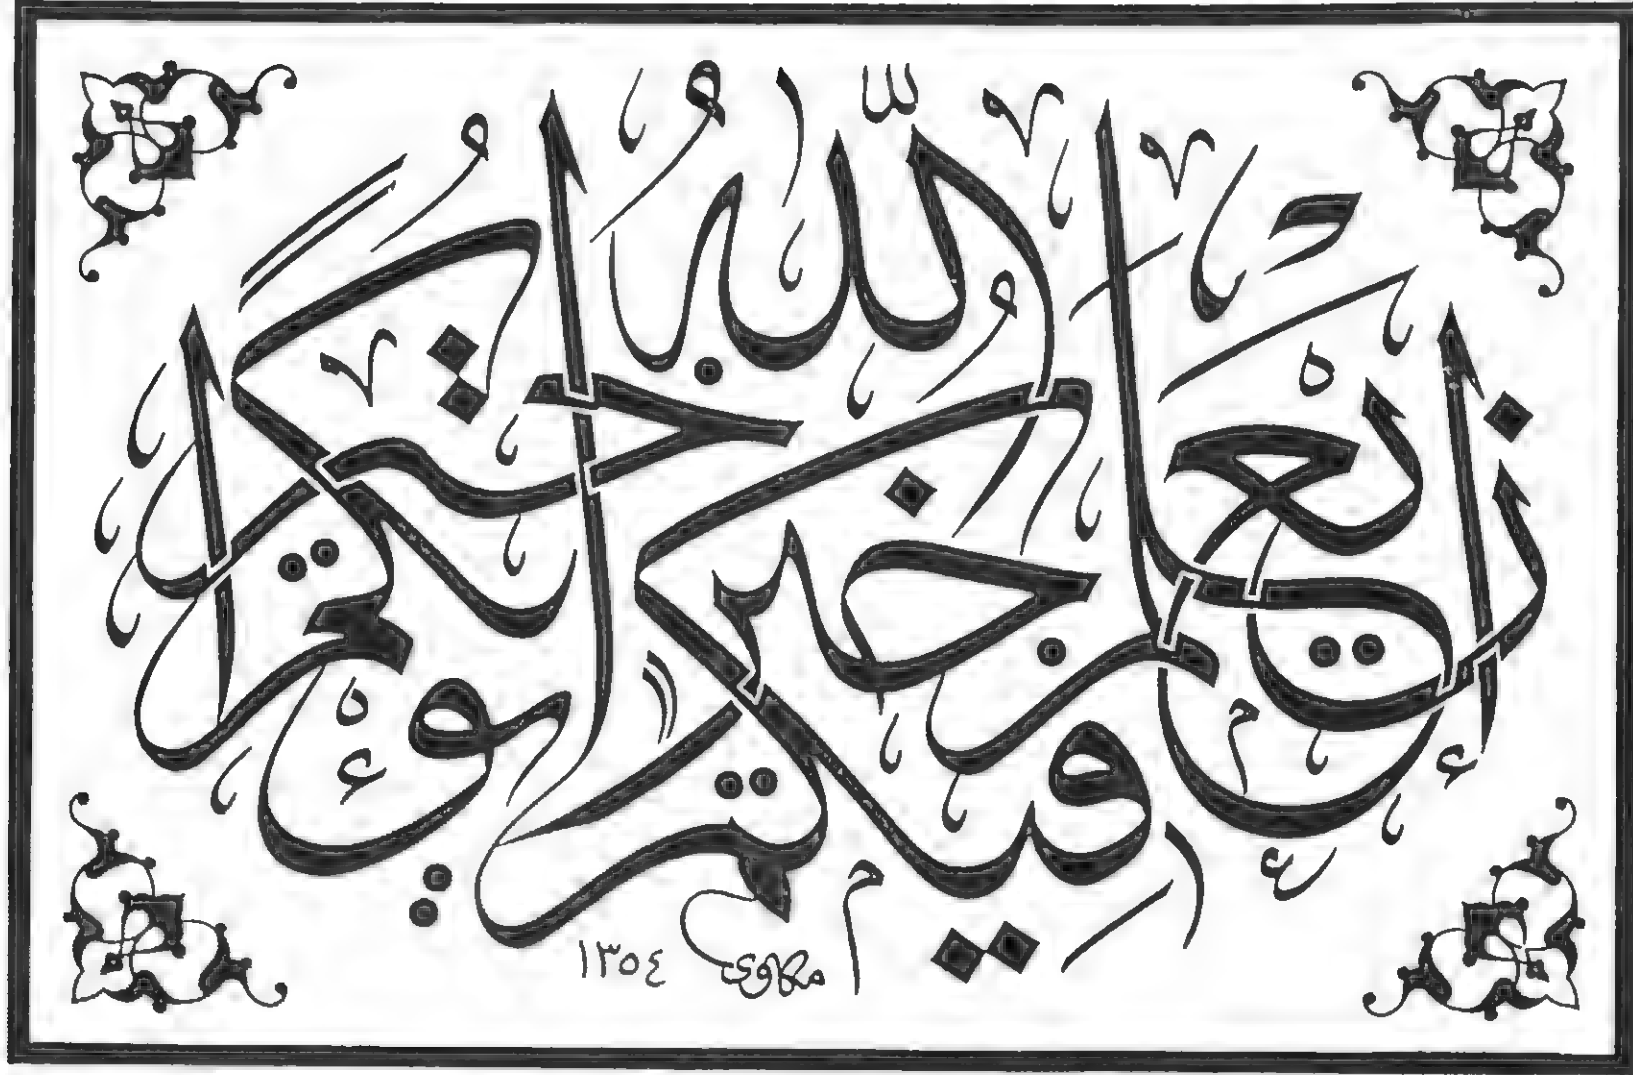 إن يعلم الله في قلوبكم خيرا يؤتكم خيرا
١٣٥٤